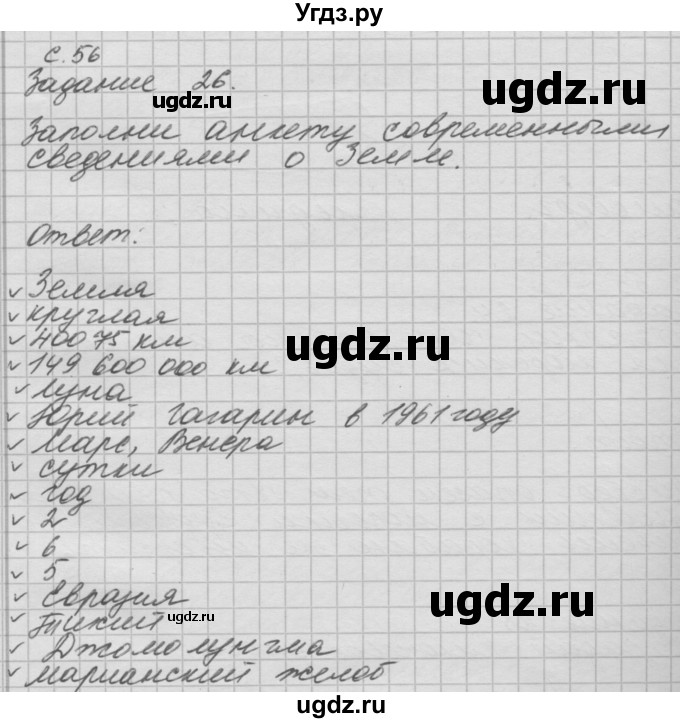 Угдз.ру
с. 56
Задание 26.
ugdz.ru
ugdz.ru
Заполни анкету современными
сведениями о Земле.
Ответ:
✓ Земля
✓ круглая
✓ 40075 км
ugdz.ru
✓ 149 600 000 км
✓ Луна
✓ Юрий Гагарин в 1961 году
✓ Марс, Венера
✓ сутки
✓ год
✓ 2
✓ 6
✓ 5
✓ Евразия
ugdz.ru
ugdz.ru
✓ Тихий
✓ Джомолунгма
✓ Марианский желоб
ugdz.ru